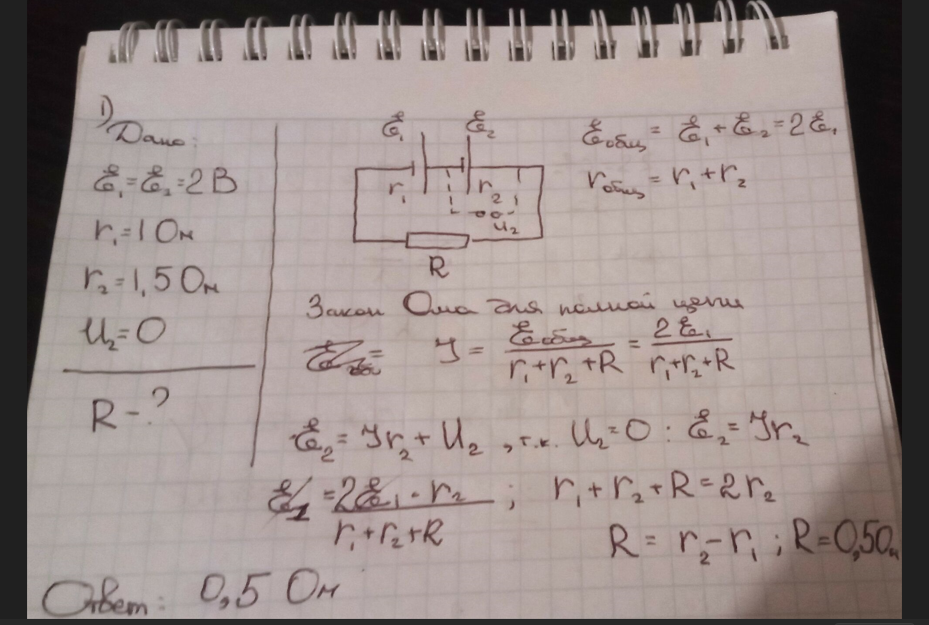 1)
Дано:
ℰ₁=ℰ₂=2В
r₁=1Ом
r₂=1,5Ом
U₂=0
R-?
ℰ₁ ℰ₂
r₁ r₂
U₂
R
ℰобщ=ℰ₁+ℰ₂=2ℰ₁
rобщ=r₁+r₂
Закон Ома для полной цепи
J = ℰобщ/(r₁+r₂+R) = 2ℰ₁/(r₁+r₂+R)
ℰ₂=Jr₂+U₂, т.к. U₂=0: ℰ₂=Jr₂
ℰ₁=2ℰ₁·r₂/(r₁+r₂+R); r₁+r₂+R=2r₂
R=r₂-r₁; R=0,5Ом
Ответ: 0,5 Ом